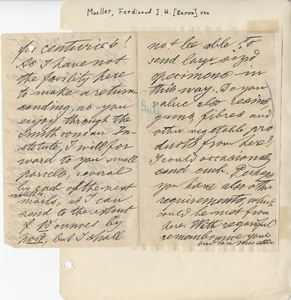 Mueller, Ferdinand J. H. [Baron] von
for centuries!
As I have not
the facility here
to make a return
sending, as you
enjoy through the
Smithsonian In-
stitute, I will for
ward to you small
parcels, several
by each of the next
mails, as I can
send to the extent
of 10 ounces by
post, but I shall
not be able to
send large sized
specimens in
this way. Do you
value also resins
gums, fibres and
other vegetable pro
ducts from here?
I could occasionally
send such. Perhaps
you have also other
requirements, which
could be met from
here. With regardful
remembrance your
Ferd von Mueller